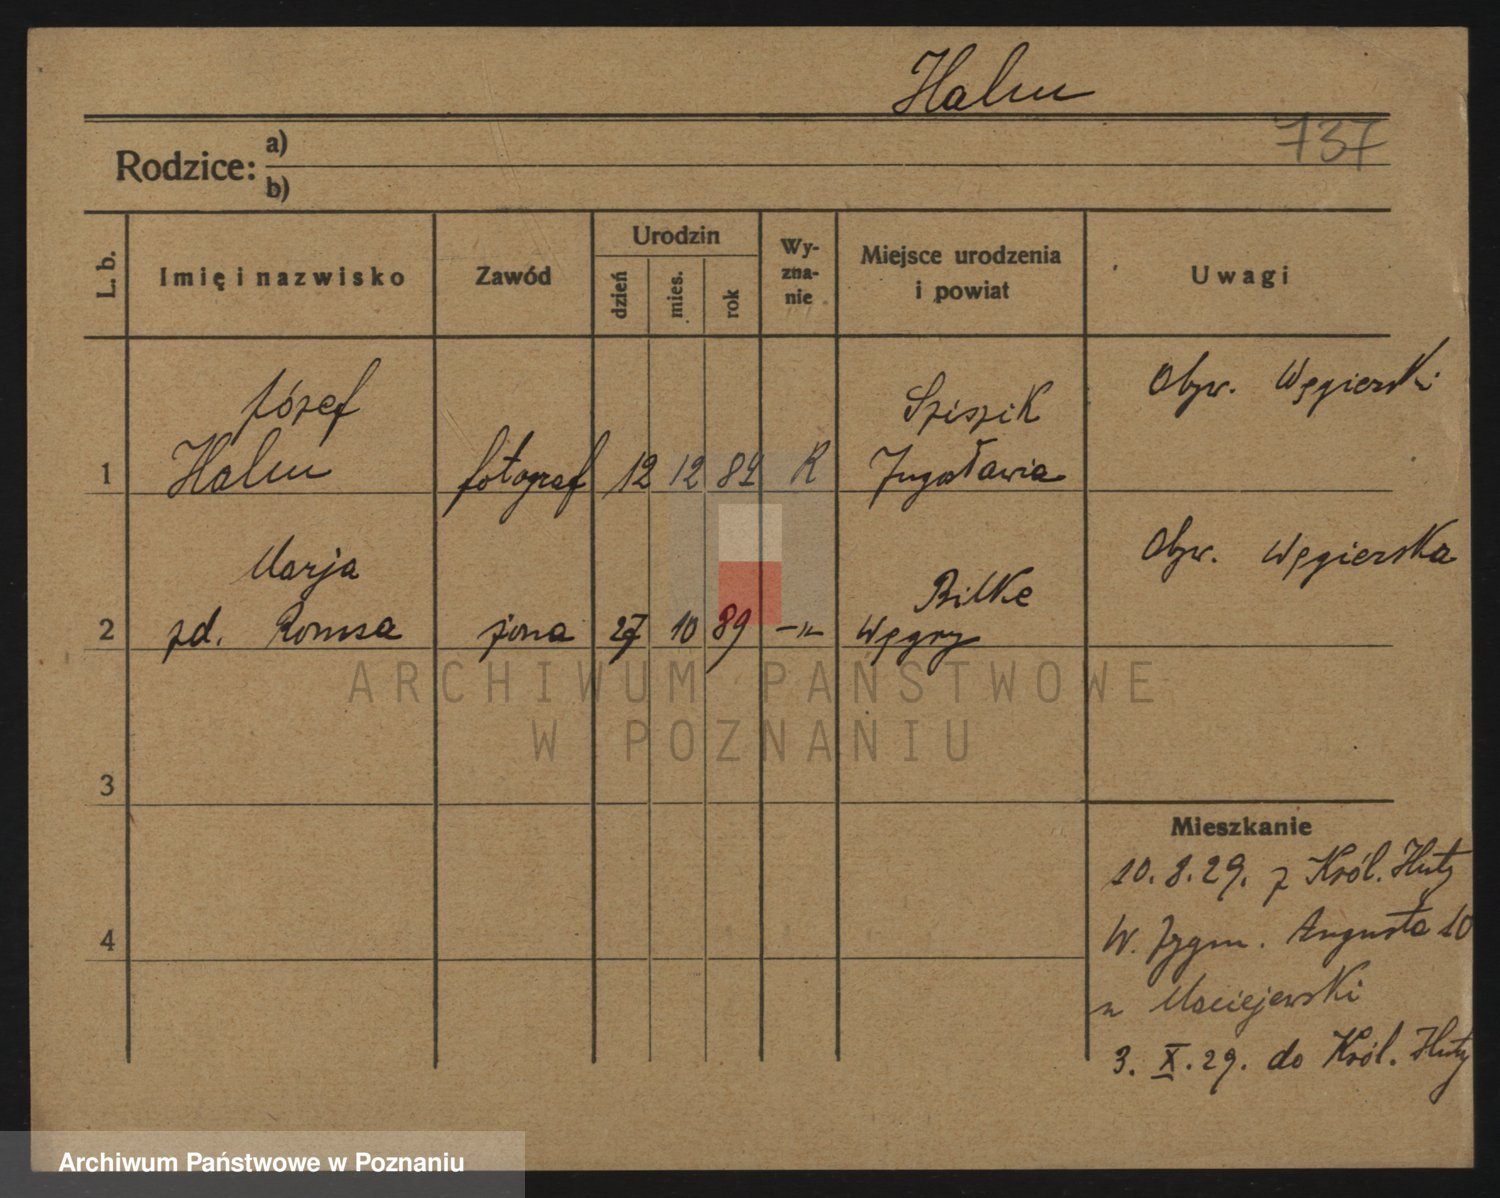 Halm
737
Rodzice:
a)
b)
L. b.
Imię i nazwisko
Zawód
Urodzin
dzień
mies.
rok
Wy-
zna-
nie
Miejsce urodzenia
i powiat
Uwagi
1
Józef
Halm
fotograf
12
12
89
R
Sziszik
Jugosławia
Obyw. Węgierski
2
Marja
zd. Romsa
żona
27
10
89
-"-
Bilke
Węgry
Obyw. Węgierska
3
4
Mieszkanie
10.8.29. z Król. Huty
W. Zygm. Augusta 10
u Maciejewski
3. X. 29. do Król. Huty
ARCHIWUM PAŃSTWOWE
W POZNANIU
Archiwum Państwowe w Poznaniu